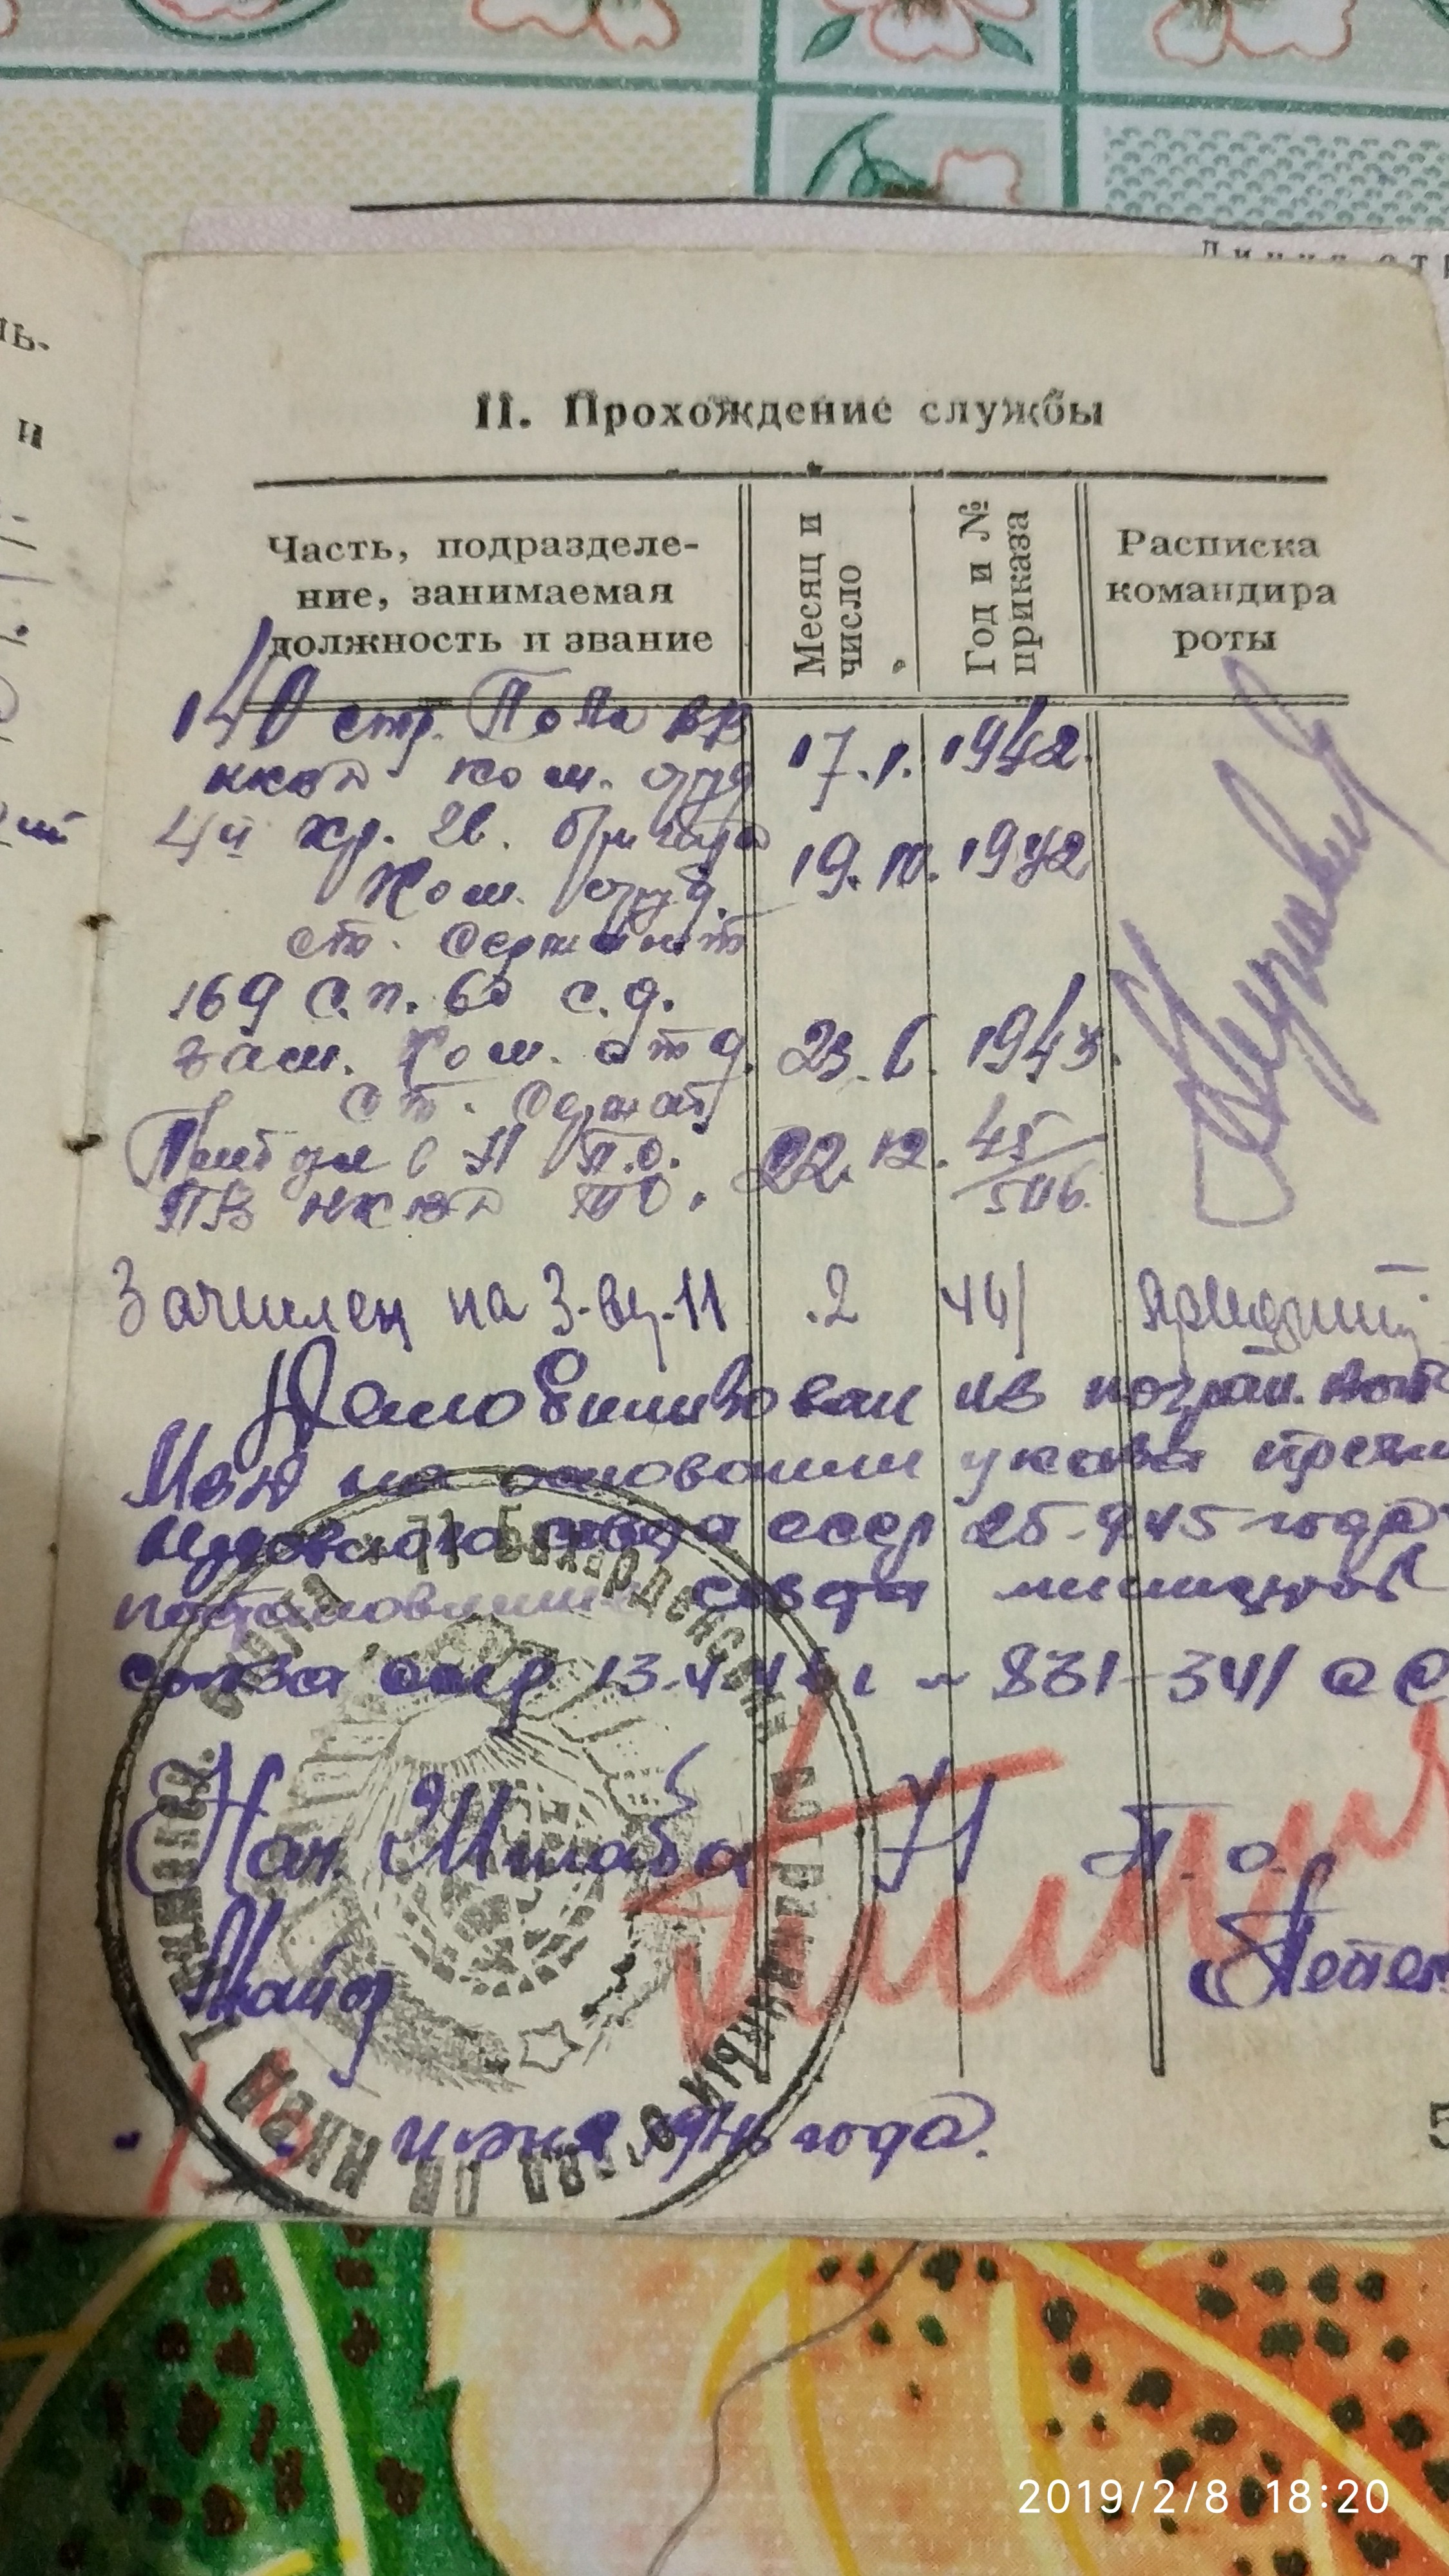 Линия отр
ль.
и
II. Прохождение службы
Часть, подразделе-
ние, занимаемая
должность и звание
Месяц и
число
Год и №
приказа
Расписка
командира
роты
140 стр. Полк вв 17.1. 1942
нквд ком. оруд
4й кр. зв. бригада 19.10. 1942
Ком. оруд.
ст. сержант
169 с.п. 60 с.д.
зам. Ком. отд. 23.6. 1943.
ст. Сержант
Прибыл в 71 П.О. 22.12. 45/506.
ПВ НКВД
Зачислен на 3-вц.-11 .2 46
Демобилизован из погран. войск
МВД на основании указа президиума
верховного совета ссср 25-9 45 года
постановления совета министров
союза ссср 13.4.46 г 831-341 сс
Нач. Штаба 71 П.О.
Майор
июня 1946 года.
71 Бахарденский
НКВД
5
2019/2/8 18:20